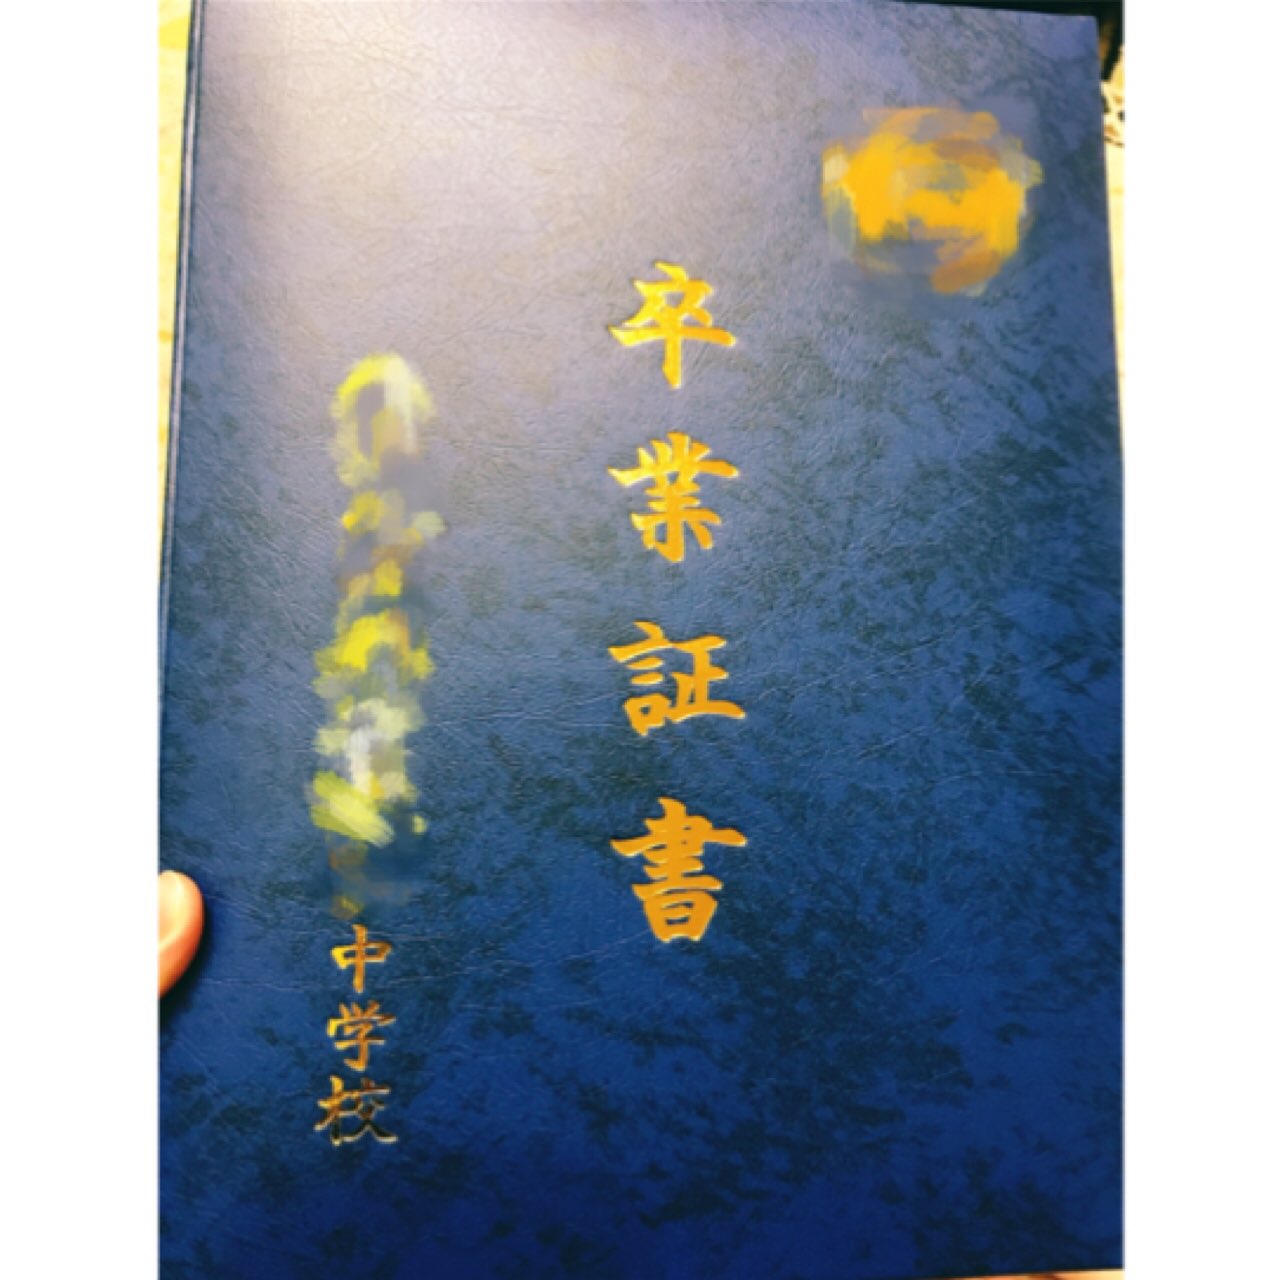 卒業証書
中学校